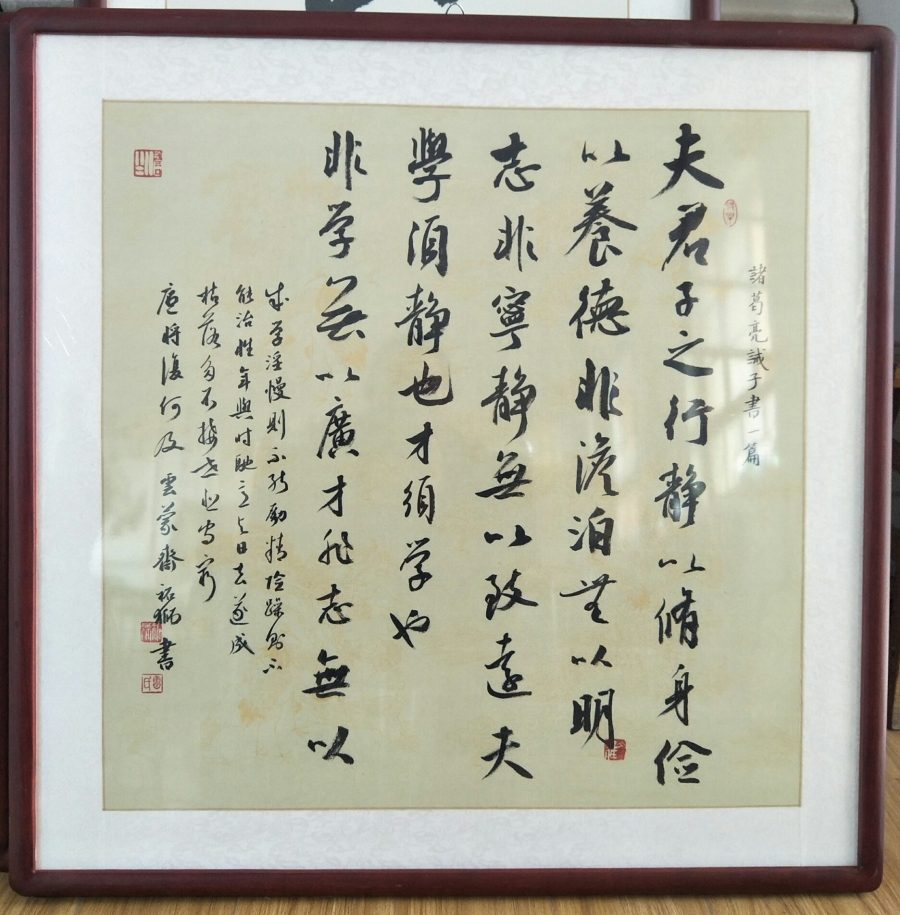 諸葛亮誡子書一篇
夫君子之行静以脩身俭
以養德非澹泊無以明
志非寧静無以致遠夫
學須静也才須学也
非学無以廣才非志無以
成学淫慢則不能勵精险躁则不
能治性年與时馳意与日去遂成
枯落多不接世悲守窮
廬将復何及 雲蒙齋 書